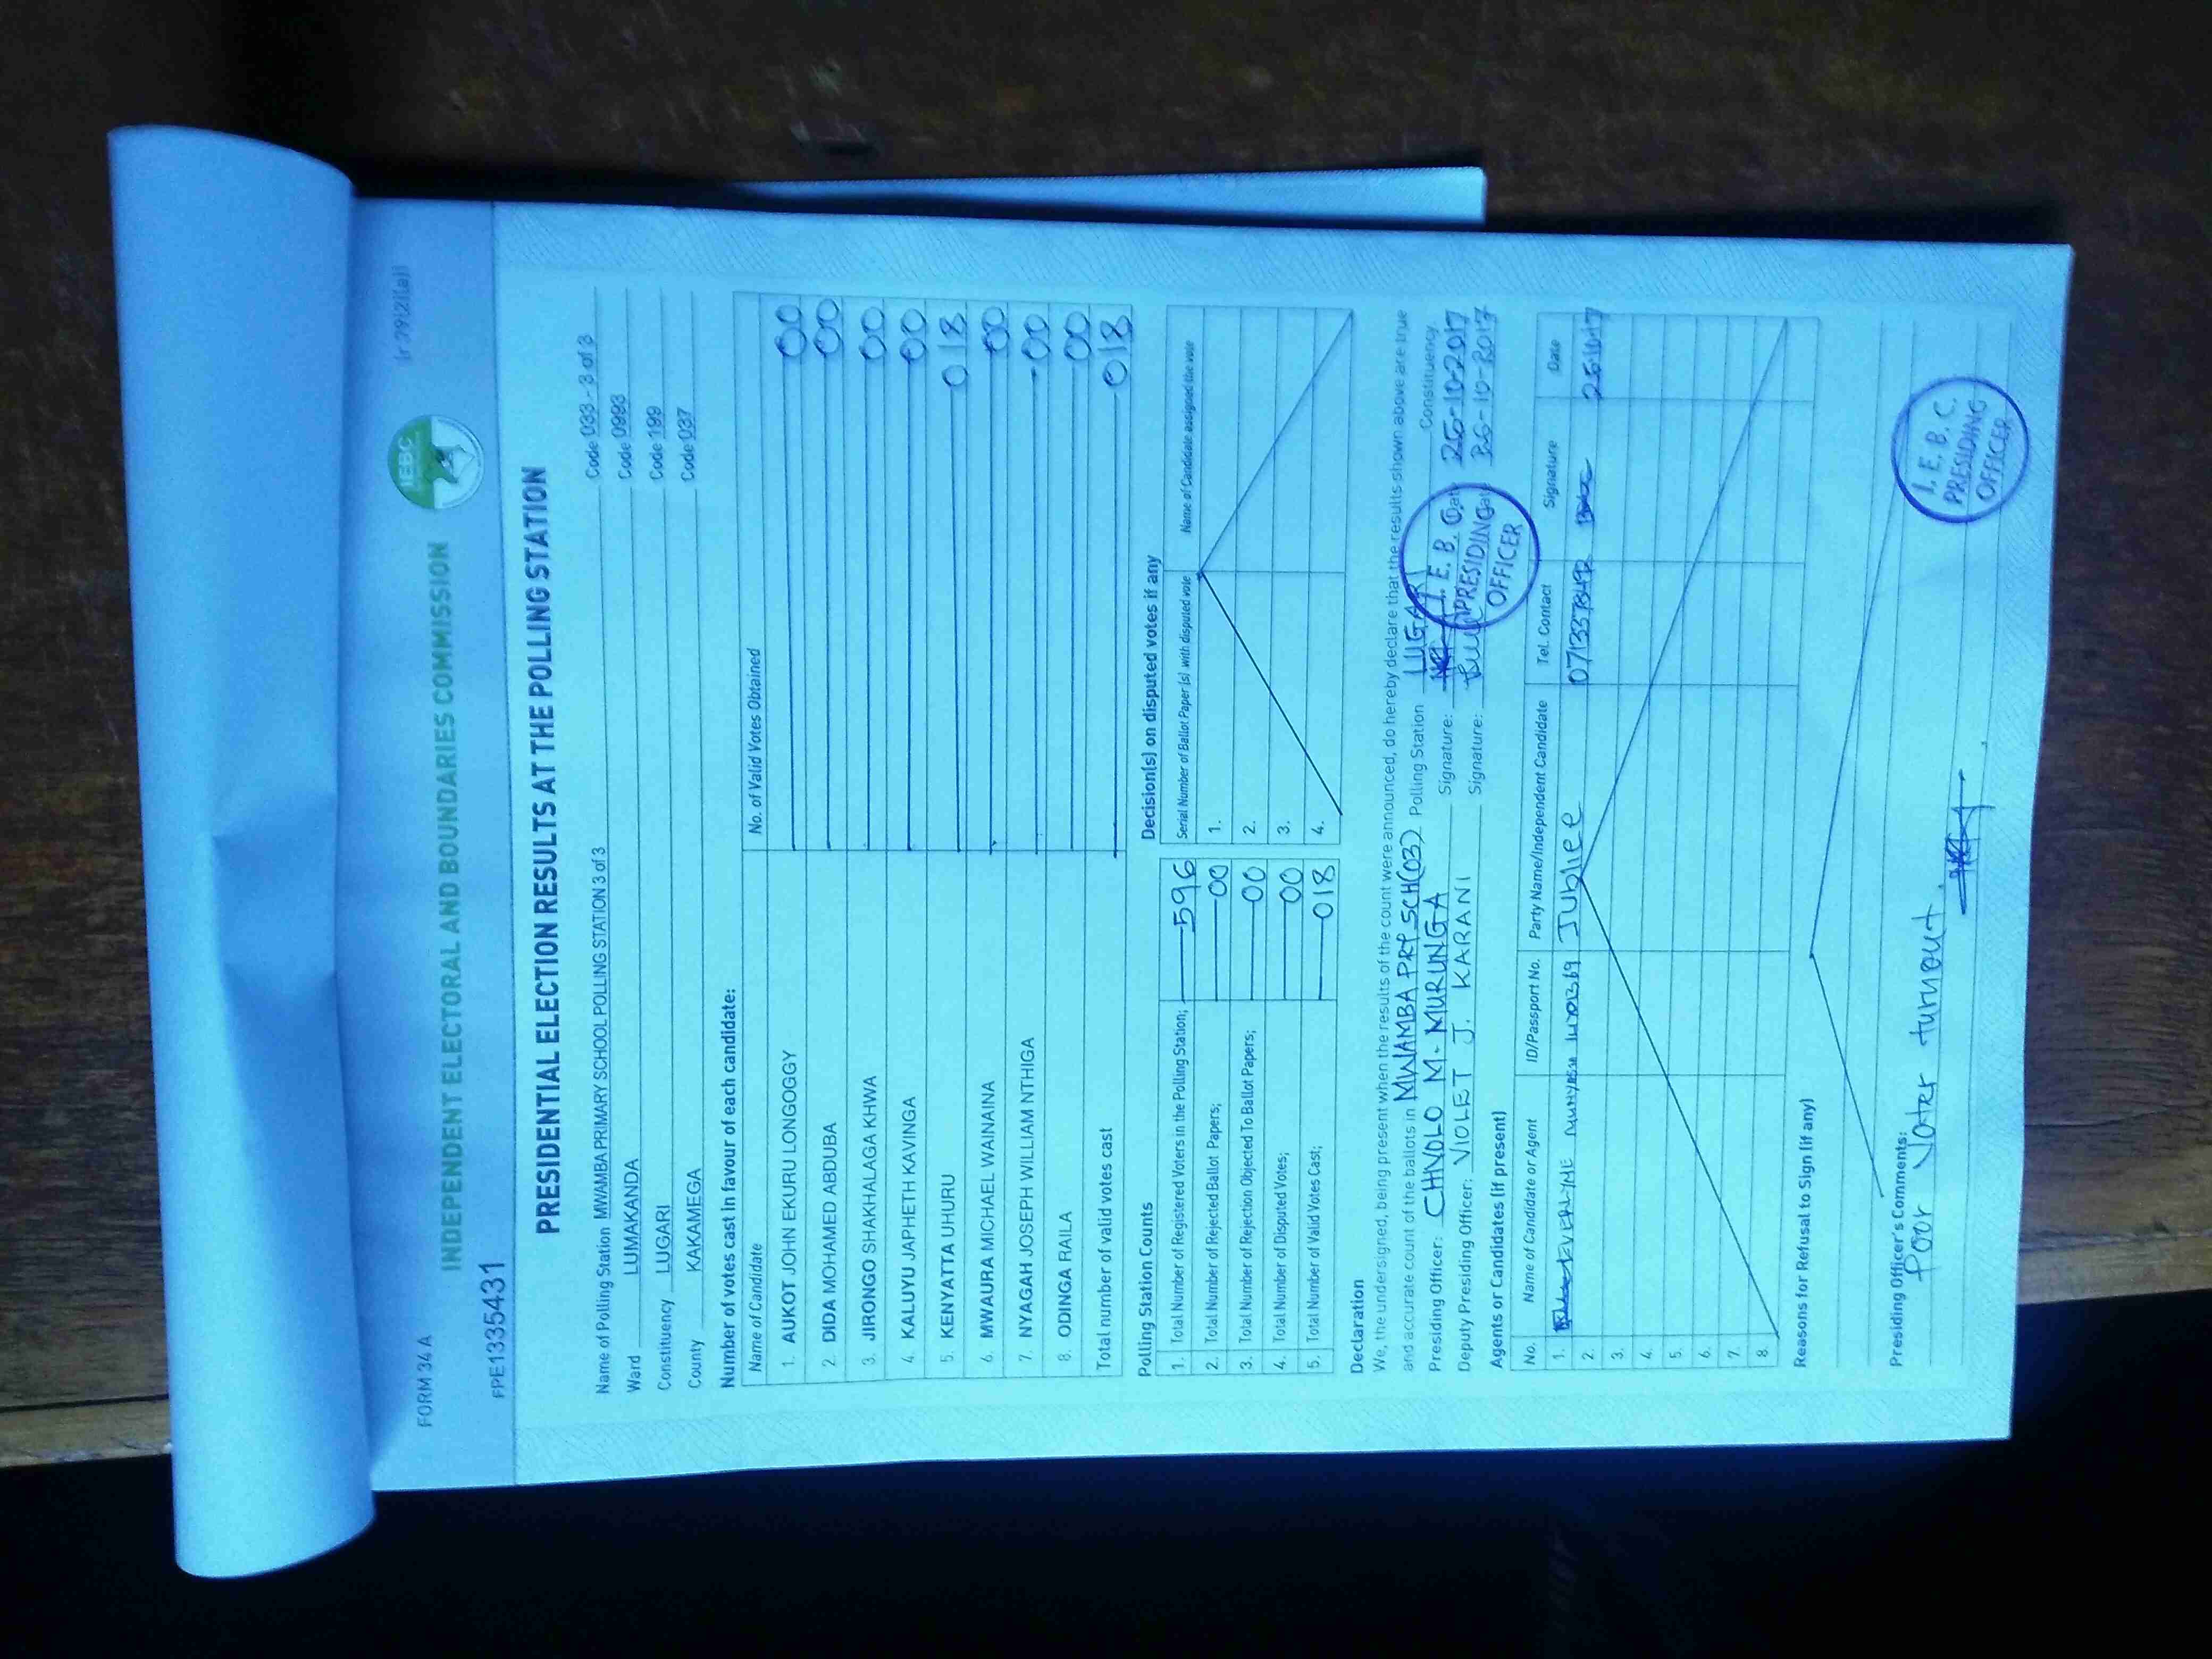 FORM 34 A
(r 79(2)(a))
IEBC
INDEPENDENT ELECTORAL AND BOUNDARIES COMMISSION
FPE1335431
PRESIDENTIAL ELECTION RESULTS AT THE POLLING STATION
Name of Polling Station MWAMBA PRIMARY SCHOOL POLLING STATION 3 of 3 Code 033 - 3 of 3
Ward LUMAKANDA Code 0993
Constituency LUGARI Code 199
County KAKAMEGA Code 037
Number of votes cast in favour of each candidate:
Name of Candidate No. of Valid Votes Obtained
1. AUKOT JOHN EKURU LONGOGGY 00
2. DIDA MOHAMED ABDUBA 00
3. JIRONGO SHAKHALAGA KHWA 00
4. KALUYU JAPHETH KAVINGA 00
5. KENYATTA UHURU 018
6. MWAURA MICHAEL WAINAINA 00
7. NYAGAH JOSEPH WILLIAM NTHIGA 00
8. ODINGA RAILA 00
Total number of valid votes cast 018
Polling Station Counts
1. Total Number of Registered Voters in the Polling Station; 596
2. Total Number of Rejected Ballot Papers; 00
3. Total Number of Rejection Objected To Ballot Papers; 00
4. Total Number of Disputed Votes; 00
5. Total Number of Valid Votes Cast; 018
Decision(s) on disputed votes if any
Serial Number of Ballot Paper (s) with disputed vote Name of Candidate assigned the vote
1.
2.
3.
4.
Declaration
We, the undersigned, being present when the results of the count were announced, do hereby declare that the results shown above are true
and accurate count of the ballots in MWAMBA PRY SCH(03) Polling Station LUGARI Constituency.
Presiding Officer: CHIVOLO M. MURUNGA Signature: Date 26-10-2017
Deputy Presiding Officer: VIOLET J. KARANI Signature: Date 26-10-2017
I. E. B. C.
PRESIDING
OFFICER
Agents or Candidates (if present)
No. Name of Candidate or Agent ID/Passport No. Party Name/Independent Candidate Tel. Contact Signature Date
1. EVERLYNE Jublee
2.
3.
4.
5.
6.
7.
8.
Reasons for Refusal to Sign (if any)
Presiding Officer's Comments:
Poor Voter turnout.
I. E. B. C.
PRESIDING
OFFICER